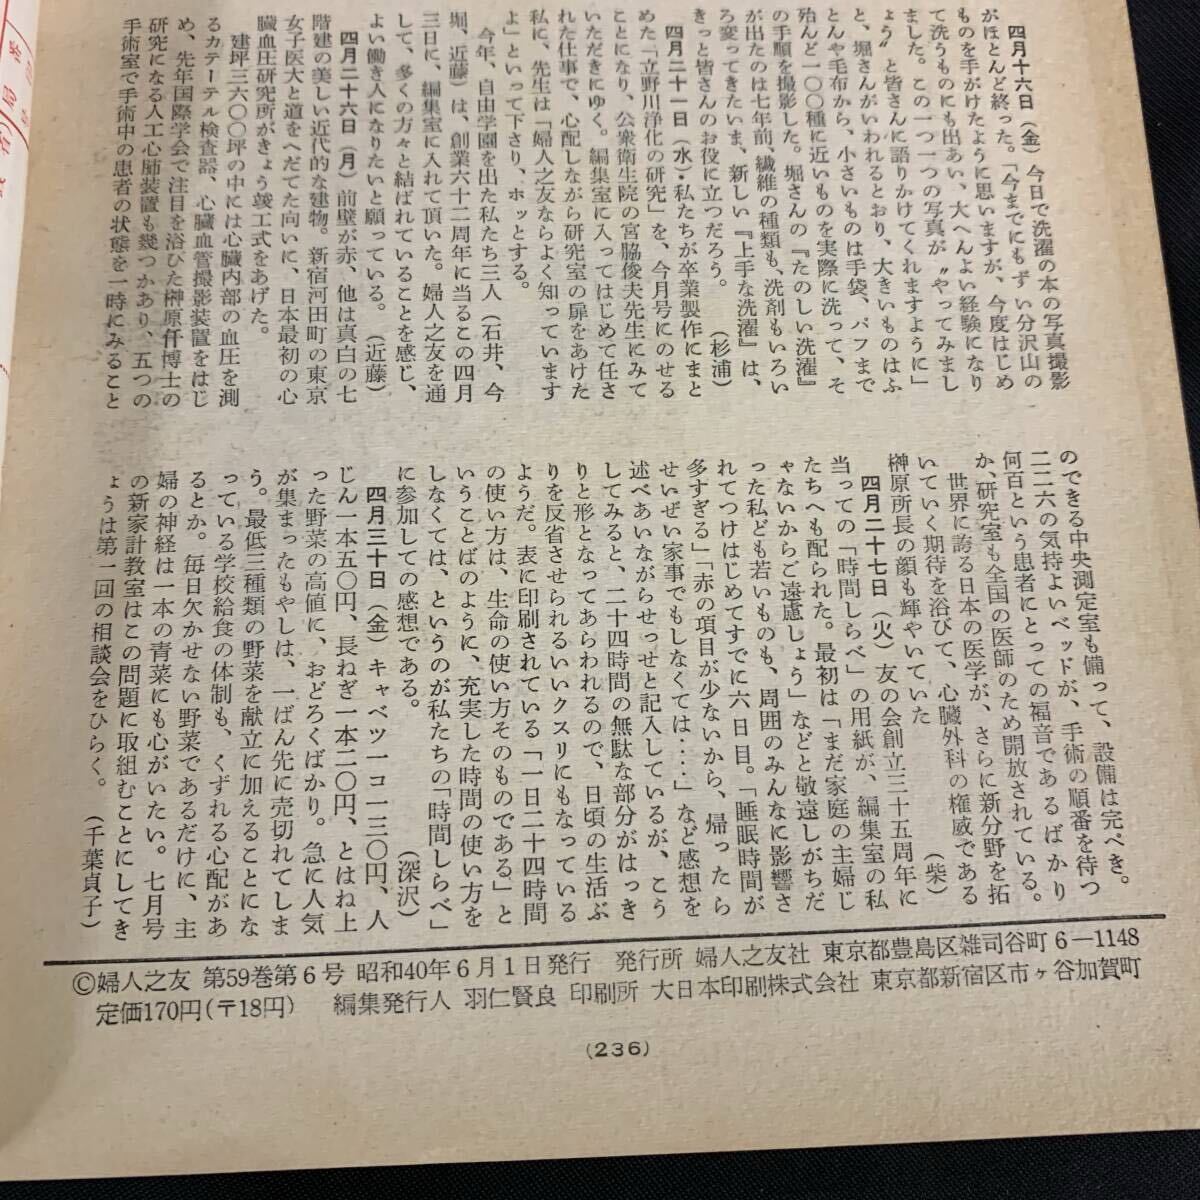 四月十六日（金）今日で洗濯の本の写真撮影
がほとんど終った。「今までにもずい分沢山の
ものを手がけたように思いますが、今度はじめ
て洗うものにも出あい、大へんよい経験になり
ました。この一つ一つの写真が〝やってみまし
ょう〟と皆さんに語りかけてくれますように」
と、堀さんがいわれるとおり、大きいものはふ
とんや毛布から、小さいものは手袋、パフまで
殆んど一〇〇種に近いものを実際に洗って、そ
の手順を撮影した。堀さんの『たのしい洗濯』
が出たのは七年前、繊維の種類も、洗剤もいろい
ろ変ってきたいま、新しい『上手な洗濯』は、
きっと皆さんのお役に立つだろう。（杉浦）
四月二十一日（水）・私たちが卒業製作にまと
めた「立野川浄化の研究」を、今月号にのせる
ことになり、公衆衛生院の宮脇俊夫先生にみて
いただきにゆく。編集室に入ってはじめて任さ
れた仕事で、心配しながら研究室の扉をあけた
私に、先生は「婦人之友ならよく知っています
よ」といって下さり、ホッとする。
今年、自由学園を出た私たち三人（石井、今
堀、近藤）は、創業六十二周年に当るこの四月
三日に、編集室に入れて頂いた。婦人之友を通
して、多くの方々と結ばれていることを感じ、
よい働き人になりたいと願っている。（近藤）
四月二十六日（月）前壁が赤、他は真白の七
階建の美しい近代的な建物。新宿河田町の東京
女子医大と道をへだてた向いに、日本最初の心
臓血圧研究所がきょう竣工式をあげた。
建坪三六〇〇坪の中には心臓内部の血圧を測
るカテーテル検査器、心臓血管撮影装置をはじ
め、先年国際学会で注目を浴びた榊原仟博士の
研究になる人工心肺装置も幾つかあり、五つの
手術室で手術中の患者の状態を一時にみること
のできる中央測定室も備って、設備は完ぺき。
二二六の気持よいベッドが、手術の順番を待つ
何百という患者にとっての福音であるばかり
か、研究室も全国の医師のため開放されている。
世界に誇る日本の医学が、さらに新分野を拓
いていく期待を浴びて、心臓外科の権威である
榊原所長の顔も輝やいていた（柴）
四月二十七日（火）友の会創立三十五周年に
当っての「時間しらべ」の用紙が、編集室の私
たちへも配られた。最初は「まだ家庭の主婦じ
ゃないからご遠慮しょう」などと敬遠しがちだ
った私ども若いものも、周囲のみんなに影響さ
れてつけはじめてすでに六日目。「睡眠時間が
多すぎる」「赤の項目が少ないから、帰ったら
せいぜい家事でもしなくては‥‥」など感想を
述べあいながらせっせと記入しているが、こう
してみると、二十四時間の無駄な部分がはっき
りと形となってあらわれるので、日頃の生活ぶ
りを反省させられるいいクスリにもなっている
ようだ。表に印刷されている「一日二十四時間
の使い方は、生命の使い方そのものである」と
いうことばのように、充実した時間の使い方を
しなくては、というのが私たちの「時間しらべ」
に参加しての感想である。（深沢）
四月三十日（金）キャベツ一コ一三〇円、人
じん一本五〇円、長ねぎ一本二〇円、とはね上
った野菜の高値に、おどろくばかり。急に人気
が集まったもやしは、一ばん先に売切れてしま
う。最低三種類の野菜を献立に加えることにな
っている学校給食の体制も、くずれる心配があ
るとか。毎日欠かせない野菜であるだけに、主
婦の神経は一本の青菜にも心がいたい。七月号
の新家計教室はこの問題に取組むことにしてき
ょうは第一回の相談会をひらく。（千葉貞子）
©婦人之友 第59巻第6号 昭和40年6月1日発行 発行所 婦人之友社 東京都豊島区雑司谷町6－1148
定価170円（〒18円） 編集発行人 羽仁賢良 印刷所 大日本印刷株式会社 東京都新宿区市ヶ谷加賀町
（236）